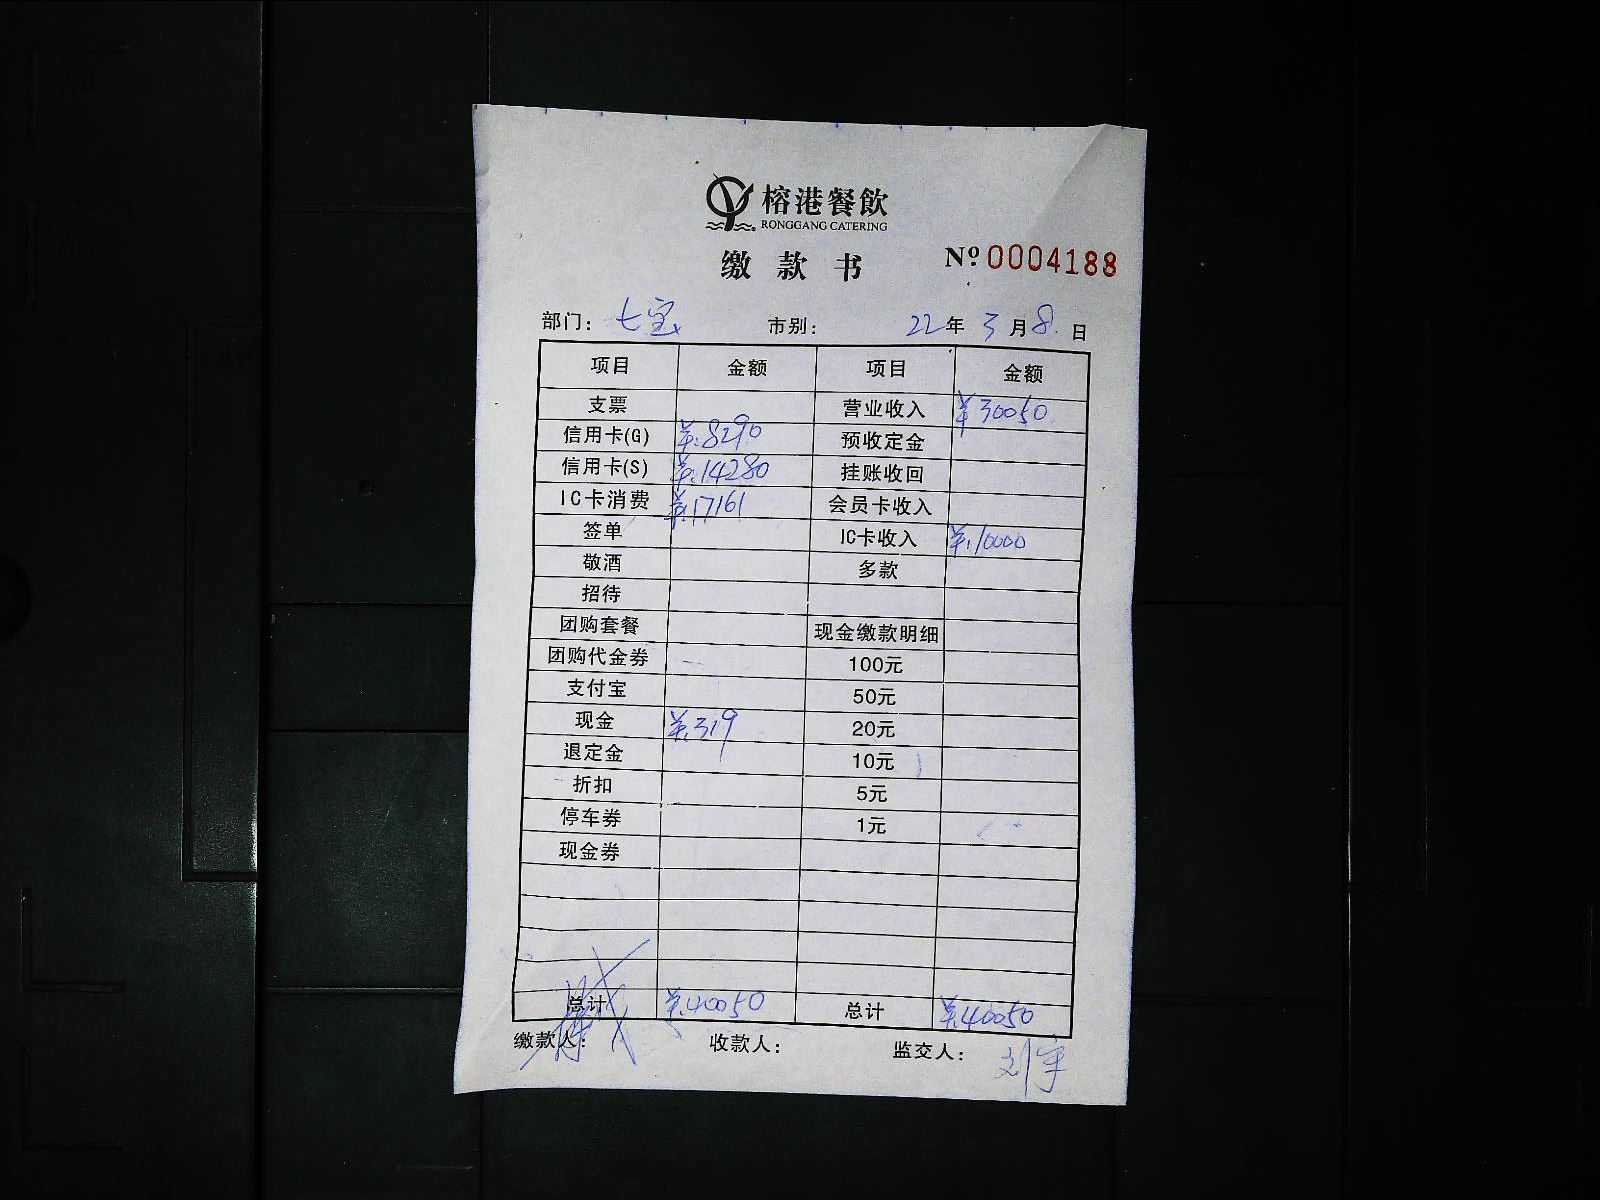 榕港餐飲
RONGGANG CATERING
缴款书 Nº 0004188
部门: 七宝 市别: 22年3月8日
项目 金额 项目 金额
支票 营业收入 ¥30050
信用卡(G) ¥:8290 预收定金
信用卡(S) ¥:14280 挂账收回
IC卡消费 ¥:17161 会员卡收入
签单 IC卡收入 ¥:10000
敬酒 多款
招待
团购套餐 现金缴款明细
团购代金券 100元
支付宝 50元
现金 ¥:319 20元
退定金 10元
折扣 5元
停车券 1元
现金券
总计 ¥:40050 总计 ¥:40050
缴款人: 收款人: 监交人: 刘宇